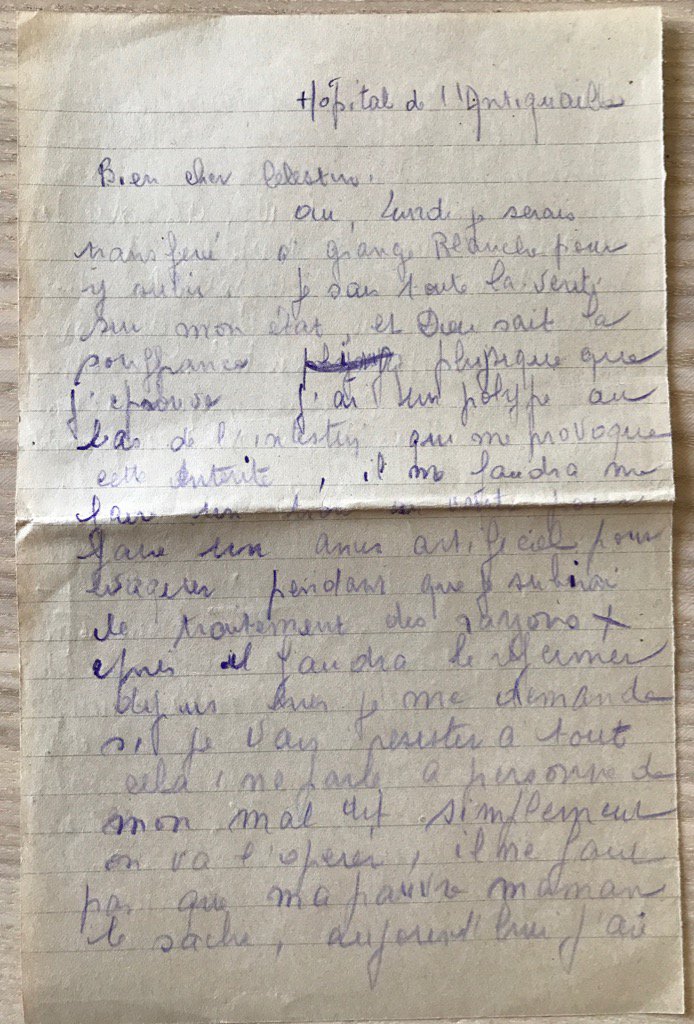 Hôpital de l'Antiquaille
Bien cher Celestin.
Oui, Lundi je serais
transferé a grange Blanche pour
y subir. je sais toute la verité
sur mon état, et Dieu sait la
souffrance physique que
j'eprouve j'ai un polype au
bas de l'intestin qui me provoque
cette enterite, il me faudra me
faire un
faire un anus artificiel pour
evacuer pendant que je subirai
le traitement des rayons X
apres il faudra le fermer
depuis hier je me demande
si je vais resister a tout
cela, ne parle a personne de
mon mal dit simplement
on va l'operer, il ne faut
pas que ma pauvre maman
le sache, aujourd'hui j'ai